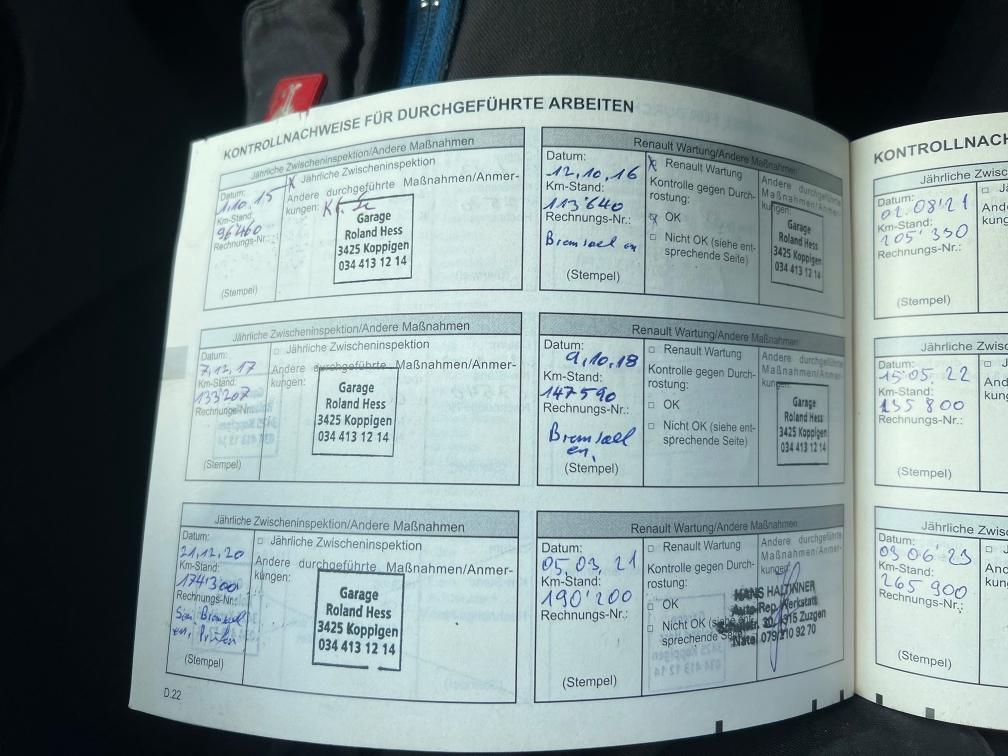 KONTROLLNACHWEISE FÜR DURCHGEFÜHRTE ARBEITEN
Jährliche Zwischeninspektion/Andere Maßnahmen
Datum:
1.10.15
Km-Stand:
96'460
Rechnungs-Nr.:
(Stempel)
X Jährliche Zwischeninspektion
Andere durchgeführte Maßnahmen/Anmer-
kungen:
Garage
Roland Hess
3425 Koppigen
034 413 12 14
Renault Wartung/Andere Maßnahmen
Datum:
12,10,16
Km-Stand:
113'640
Rechnungs-Nr.:
(Stempel)
X Renault Wartung
Kontrolle gegen Durch-
rostung:
X OK
□ Nicht OK (siehe ent-
sprechende Seite)
Andere durchgeführte
Maßnahmen/Anmer-
kungen:
Garage
Roland Hess
3425 Koppigen
034 413 12 14
Jährliche Zwischeninspektion/Andere Maßnahmen
Datum:
7,12,17
Km-Stand:
133'207
Rechnungs-Nr.:
(Stempel)
□ Jährliche Zwischeninspektion
Andere durchgeführte Maßnahmen/Anmer-
kungen:
Garage
Roland Hess
3425 Koppigen
034 413 12 14
Renault Wartung/Andere Maßnahmen
Datum:
9,10,18
Km-Stand:
147'590
Rechnungs-Nr.:
(Stempel)
□ Renault Wartung
Kontrolle gegen Durch-
rostung:
□ OK
□ Nicht OK (siehe ent-
sprechende Seite)
Andere durchgeführte
Maßnahmen/Anmer-
kungen:
Garage
Roland Hess
3425 Koppigen
034 413 12 14
Jährliche Zwischeninspektion/Andere Maßnahmen
Datum:
21,12,20
Km-Stand:
174'300
Rechnungs-Nr.:
(Stempel)
□ Jährliche Zwischeninspektion
Andere durchgeführte Maßnahmen/Anmer-
kungen:
Garage
Roland Hess
3425 Koppigen
034 413 12 14
Renault Wartung/Andere Maßnahmen
Datum:
05,03,21
Km-Stand:
190'200
Rechnungs-Nr.:
(Stempel)
□ Renault Wartung
Kontrolle gegen Durch-
rostung:
□ OK
□ Nicht OK (siehe ent-
sprechende
Andere durchgeführte
Maßnahmen/Anmer-
kungen:
HANS
Auto-Rep. Werkstatt
4315 Zuzgen
Natel 079 210 92 70
D.22
KONTROLLNACH
Jährliche Zwisc
Datum:
02.08'21
Km-Stand:
205'350
Rechnungs-Nr.:
(Stempel)
Jährliche Zwisc
Datum:
15.05.22
Km-Stand:
800
Rechnungs-Nr.:
(Stempel)
Jährliche Zwisc
Datum:
09 06'23
Km-Stand:
265 900
Rechnungs-Nr.:
(Stempel)